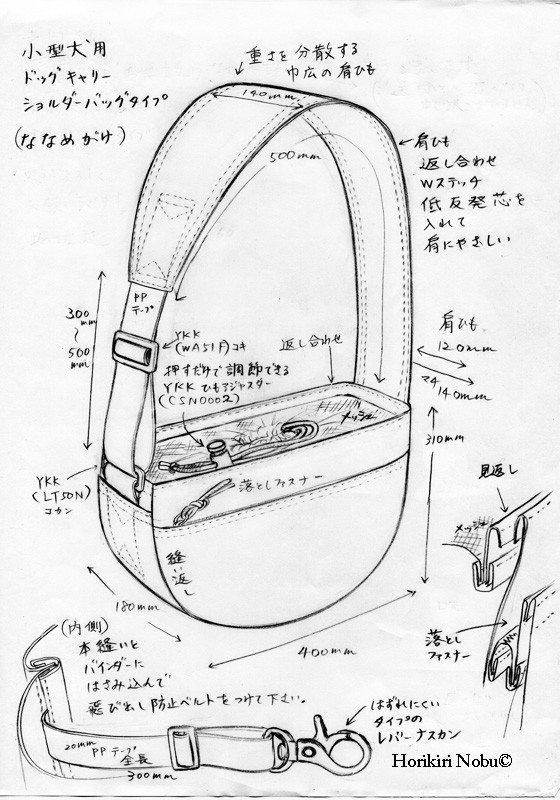 小型犬用
ドッグキャリー
ショルダーバッグタイプ
(ななめがけ)
重さを分散する
巾広の肩ひも
140mm
500mm
肩ひも
返し合わせ
Wステッチ
低反発芯を
入れて
肩にやさしい
PP
テープ
300mm
〜
500mm
YKK
(WA51F)コキ
押すだけで調節できる
YKKひもアジャスター
(CSN0002)
返し合わせ
メッシュ
肩ひも
120mm
マチ
140mm
310mm
YKK
(LT50N)
コカン
落としファスナー
縫い返し
見返し
メッシュ
落とし
ファスナー
180mm
400mm
(内側)
本縫いと
バインダーに
はさみ込んで
飛び出し防止ベルトをつけて下さい。
20mm
PPテープ
全長
300mm
はずれにくい
タイプの
レバーナスカン
Horikiri Nobu©